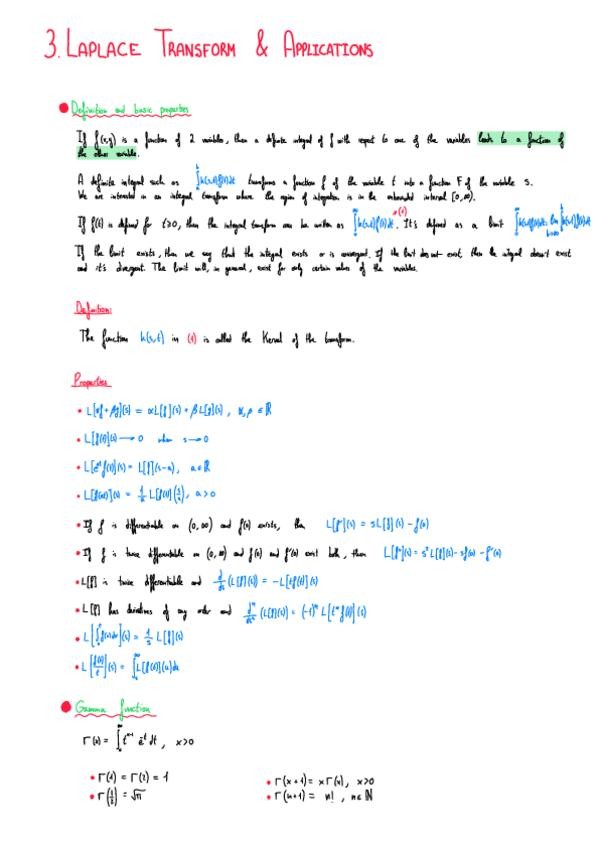 3. LAPLACE TRANSFORM & APPLICATIONS
Definition and basic properties
If f(x,y) is a function of 2 variables, then a definite integral of f with respect to one of the variables leads to a function of
the other variable.
A definite integral such as ∫ₐᵇ k(s,t)f(t)dt transforms a function f of the variable t into a function F of the variable s.
We are interested in an integral transform where the region of integration is in the unbounded interval [0,∞).
If f(t) is defined for t≥0, then the integral transform can be written as ∫₀^∞ k(s,t)f(t)dt. (1) It's defined as a limit ∫₀^∞ k(s,t)f(t)dt = lim_{b→∞} ∫₀ᵇ k(s,t)f(t)dt
If the limit exists, then we say that the integral exists or is convergent. If the limit does not exist, then the integral doesn't exist
and it's divergent. The limit will, in general, exist for only certain values of the variables.
Definition:
The function k(s,t) in (1) is called the Kernel of the transform.
Properties
• L[αf + βg](s) = αL[f](s) + βL[g](s), α,β ∈ ℝ
• L[f(t)](s) → 0 when s → 0
• L[eᵃᵗf(t)](s) = L[f](s-a), a ∈ ℝ
• L[f(at)](s) = 1/a L[f(t)](s/a), a > 0
• If f is differentiable on (0,∞) and f(0) exists, then L[f'](s) = sL[f](s) - f(0)
• If f is twice differentiable on (0,∞) and f(0) and f'(0) exist both, then L[f''](s) = s²L[f](s) - sf(0) - f'(0)
• L[f] is twice differentiable and d/ds (L[f](s)) = -L[tf(t)](s)
• L[f] has derivatives of any order and dⁿ/dsⁿ (L[f](s)) = (-1)ⁿ L[tⁿf(t)](s)
• L[∫₀ᵗ f(u)du](s) = 1/s L[f](s)
• L[f(t)/t](s) = ∫ₛ^∞ L[f(t)](u)du
Gamma function
Γ(x) = ∫₀^∞ tˣ⁻¹ e⁻ᵗ dt, x>0
• Γ(1) = Γ(2) = 1 • Γ(x+1) = xΓ(x), x>0
• Γ(1/2) = √π • Γ(n+1) = n!, n∈ℕ